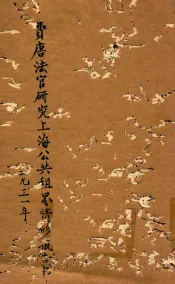 費唐法官研究上海公共租界情形
一九三一年